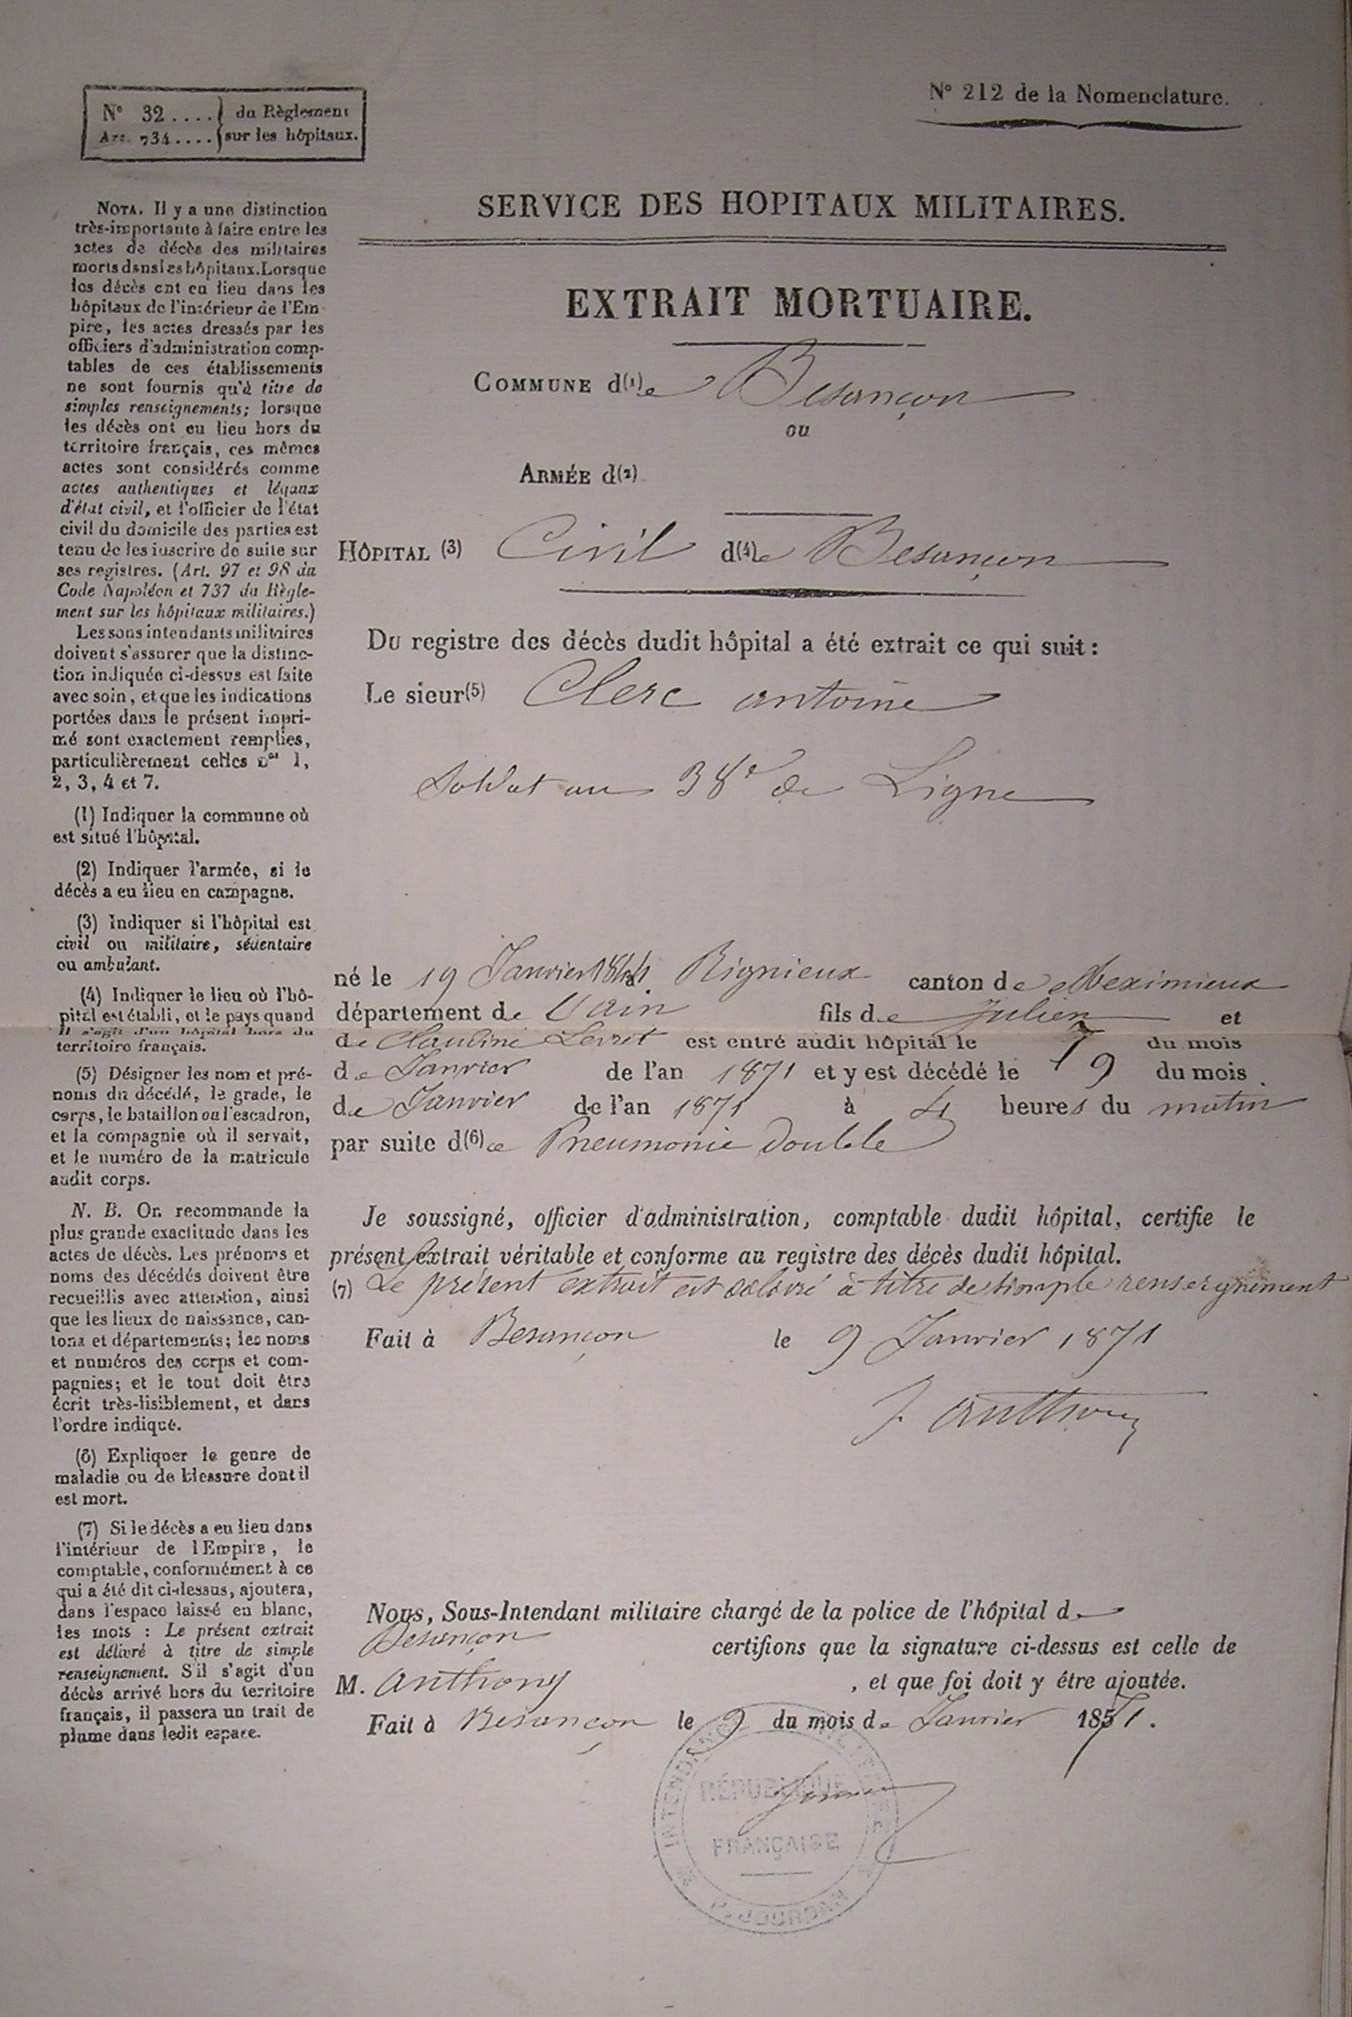 N° 32 .... du Règlement
Art. 734 .... sur les hôpitaux.
N° 212 de la Nomenclature.
SERVICE DES HOPITAUX MILITAIRES.
EXTRAIT MORTUAIRE.
COMMUNE d(1)e Besançon
ou
ARMÉE d(2)
HÔPITAL (3) Civil d(4)e Besançon
Du registre des décès dudit hôpital a été extrait ce qui suit :
Le sieur(5) Clerc antoine
Soldat au 38e de Ligne
né le 19 Janvier 1844 à Rignieux canton de Meximieux
département de l'ain fils de Julien et
de Claudine Levret est entré audit hôpital le 7 du mois
de Janvier de l'an 1871 et y est décédé le 9 du mois
de Janvier de l'an 1871 à 4 heures du matin
par suite d(6)e Pneumonie double
Je soussigné, officier d'administration, comptable dudit hôpital, certifie le
présent extrait véritable et conforme au registre des décès dudit hôpital.
(7) Le présent extrait est délivré à titre de simple renseignement
Fait à Besançon le 9 Janvier 1871
J. Anthony
Nous, Sous-Intendant militaire chargé de la police de l'hôpital de
Besançon certifions que la signature ci-dessus est celle de
M. Anthony , et que foi doit y être ajoutée.
Fait à Besançon le 9 du mois de Janvier 1871.
INTENDANCE MILITAIRE
RÉPUBLIQUE
FRANÇAISE
NOTA. Il y a une distinction
très-importante à faire entre les
actes de décès des militaires
morts dans les hôpitaux. Lorsque
les décès ont eu lieu dans les
hôpitaux de l'intérieur de l'Em-
pire, les actes dressés par les
officiers d'administration comp-
tables de ces établissements
ne sont fournis qu'à titre de
simples renseignements; lorsque
les décès ont eu lieu hors du
territoire français, ces mêmes
actes sont considérés comme
actes authentiques et légaux
d'état civil, et l'officier de l'état
civil du domicile des parties est
tenu de les inscrire de suite sur
ses registres. (Art. 97 et 98 du
Code Napoléon et 737 du Règle-
ment sur les hôpitaux militaires.)
Les sous intendants militaires
doivent s'assurer que la distinc-
tion indiquée ci-dessus est faite
avec soin, et que les indications
portées dans le présent impri-
mé sont exactement remplies,
particulièrement celles nos 1,
2, 3, 4 et 7.
(1) Indiquer la commune où
est situé l'hôpital.
(2) Indiquer l'armée, si le
décès a eu lieu en campagne.
(3) Indiquer si l'hôpital est
civil ou militaire, sédentaire
ou ambulant.
(4) Indiquer le lieu où l'hô-
pital est établi, et le pays quand
il s'agit d'un hôpital hors du
territoire français.
(5) Désigner les nom et pré-
noms du décédé, le grade, le
corps, le bataillon ou l'escadron,
et la compagnie où il servait,
et le numéro de la matricule
audit corps.
N. B. On recommande la
plus grande exactitude dans les
actes de décès. Les prénoms et
noms des décédés doivent être
recueillis avec attention, ainsi
que les lieux de naissance, can-
tons et départements; les noms
et numéros des corps et com-
pagnies; et le tout doit être
écrit très-lisiblement, et dans
l'ordre indiqué.
(6) Expliquer le genre de
maladie ou de blessure dont il
est mort.
(7) Si le décès a eu lieu dans
l'intérieur de l'Empire, le
comptable, conformément à ce
qui a été dit ci-dessus, ajoutera,
dans l'espace laissé en blanc,
les mots : Le présent extrait
est délivré à titre de simple
renseignement. S'il s'agit d'un
décès arrivé hors du territoire
français, il passera un trait de
plume dans ledit espace.